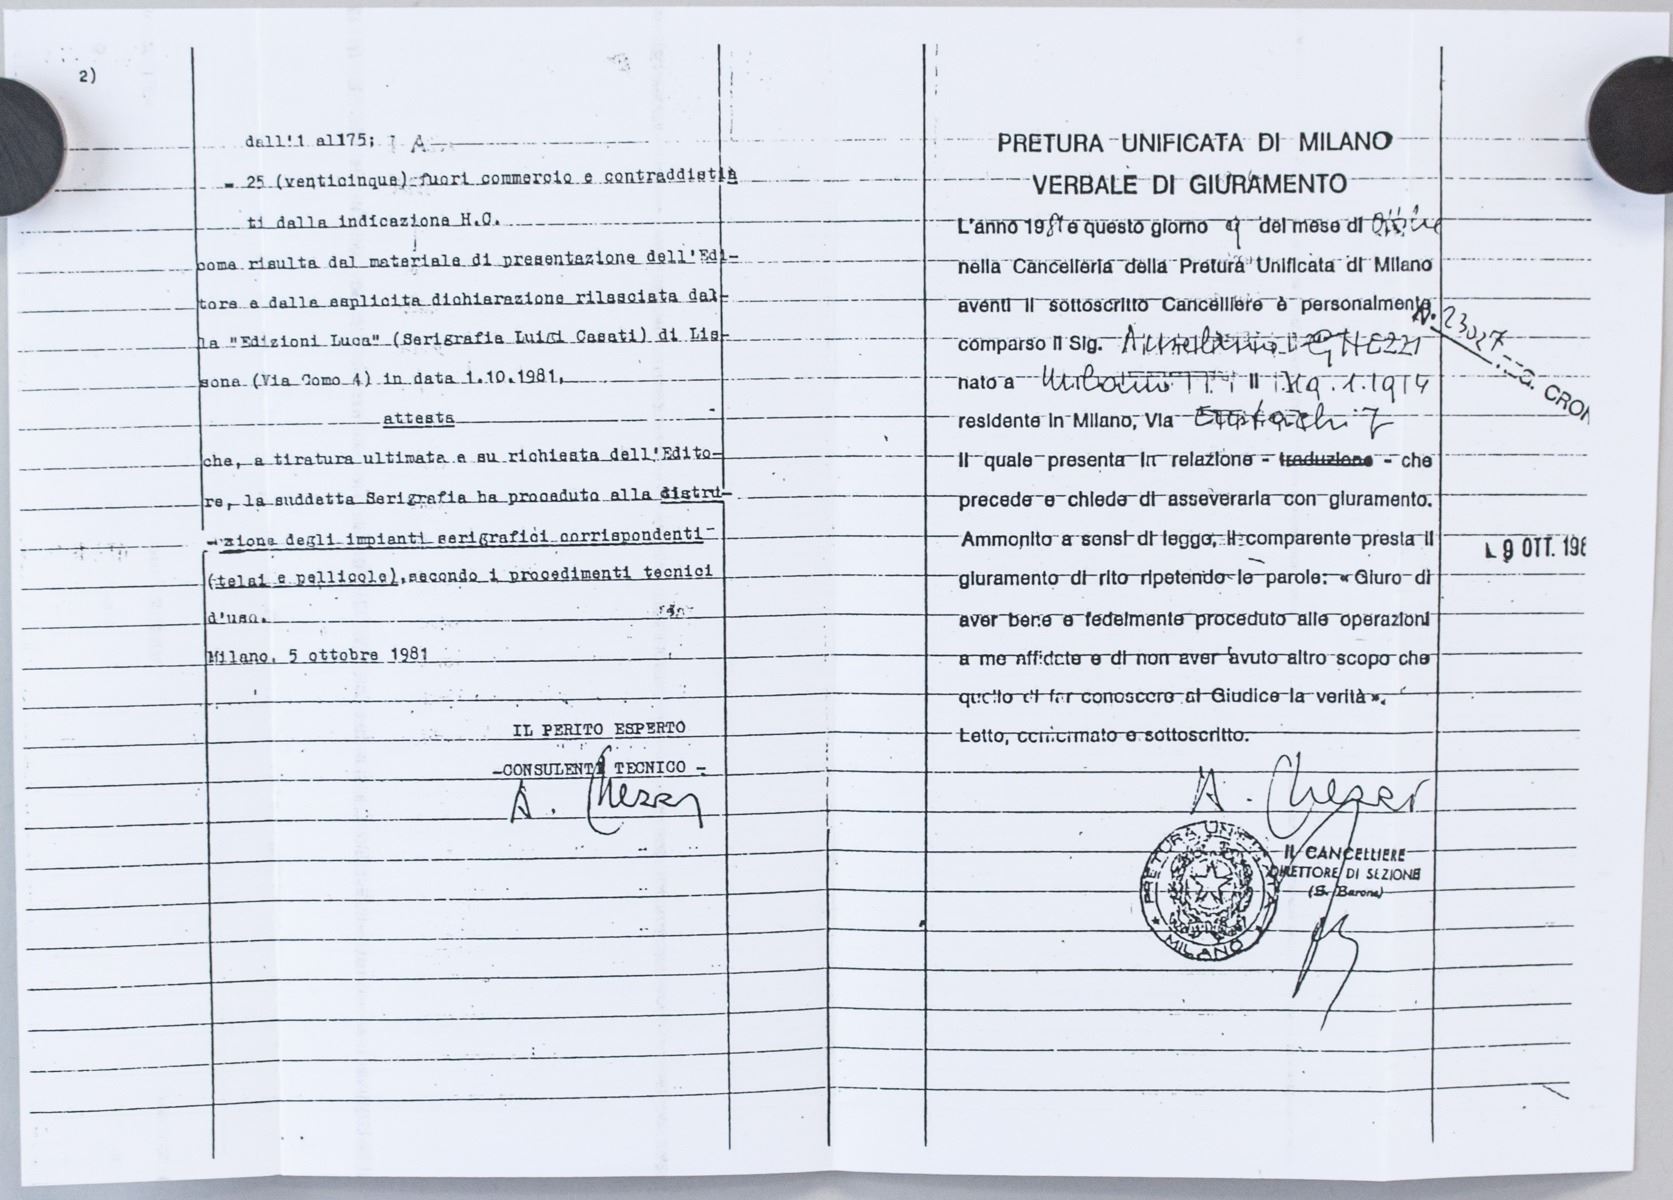 2)
dall'1 al175; A
- 25 (venticinque) fuori commercio e contraddistin
ti dalla indicazione H.C.
come risulta dal materiale di presentazione dell'Edi-
tore e dalla esplicita dichiarazione rilasciata dal-
la "Edizioni Luca" (Serigrafia Luigi Casati) di Lis-
sone (Via Como 4) in data 1.10.1981,
attesta
che, a tiratura ultimata e su richiesta dell'Edito-
re, la suddetta Serigrafia ha proceduto alla distru-
zione degli impianti serigrafici corrispondenti-
(telai e pellicole), secondo i procedimenti tecnici
d'uso.
Milano, 5 ottobre 1981
IL PERITO ESPERTO
-CONSULENTE TECNICO -
A. Ghezzi
PRETURA UNIFICATA DI MILANO
VERBALE DI GIURAMENTO
L'anno 1981 e questo giorno 9 del mese di Ottobre
nella Cancelleria della Pretura Unificata di Milano
aventi il sottoscritto Cancelliere è personalmente
comparso il Sig. GHEZZI
nato a il 1.1914
residente in Milano, Via 7
Il quale presenta in relazione - traduzione - che
precede e chiede di asseverarla con giuramento.
Ammonito a sensi di legge, il comparente presta il
giuramento di rito ripetendo le parole: « Giuro di
aver bene e fedelmente proceduto alle operazioni
a me affidate e di non aver avuto altro scopo che
quello di far conoscere al Giudice la verità ».
Letto, confermato e sottoscritto.
A. Ghezzi
IL CANCELLIERE
DIRETTORE DI SEZIONE
(S. Barone)
PRETURA UNIFICATA
MILANO
N. 23027
CRON
9 OTT. 198